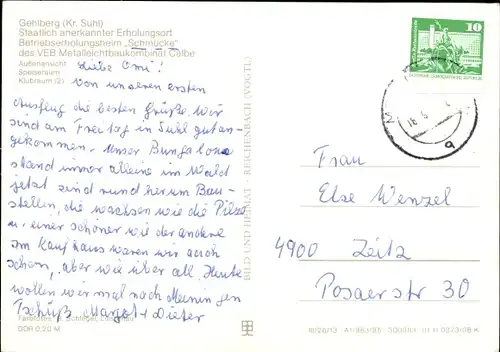 Gehlberg (Kr. Suhl)
Staatlich anerkannter Erholungsort
Betriebserholungsheim „Schmücke"
des VEB Metalleichtbaukombinat Calbe
Außenansicht
Speiseraum
Klubraum (2)
Liebe Omi!
Von unseren ersten
Ausflug die besten Grüße. Wir
sind am Freitag in Suhl gut an-
gekommen. Unser Bungalow
stand immer alleine im Wald
jetzt sind rund herum Bau-
stellen, die wachsen wie die Pilze
u. einer schöner wie der andere
im Kaufhaus waren wir auch
schon, aber wie über all. Heute
wollen wir mal nach Meiningen
Tschüß Margot + Dieter
DDR 0,20 M
BILD UND HEIMAT · REICHENBACH (VOGTL)
10
Frau
Else Wenzel
4900 Zeitz
Posaerstr 30